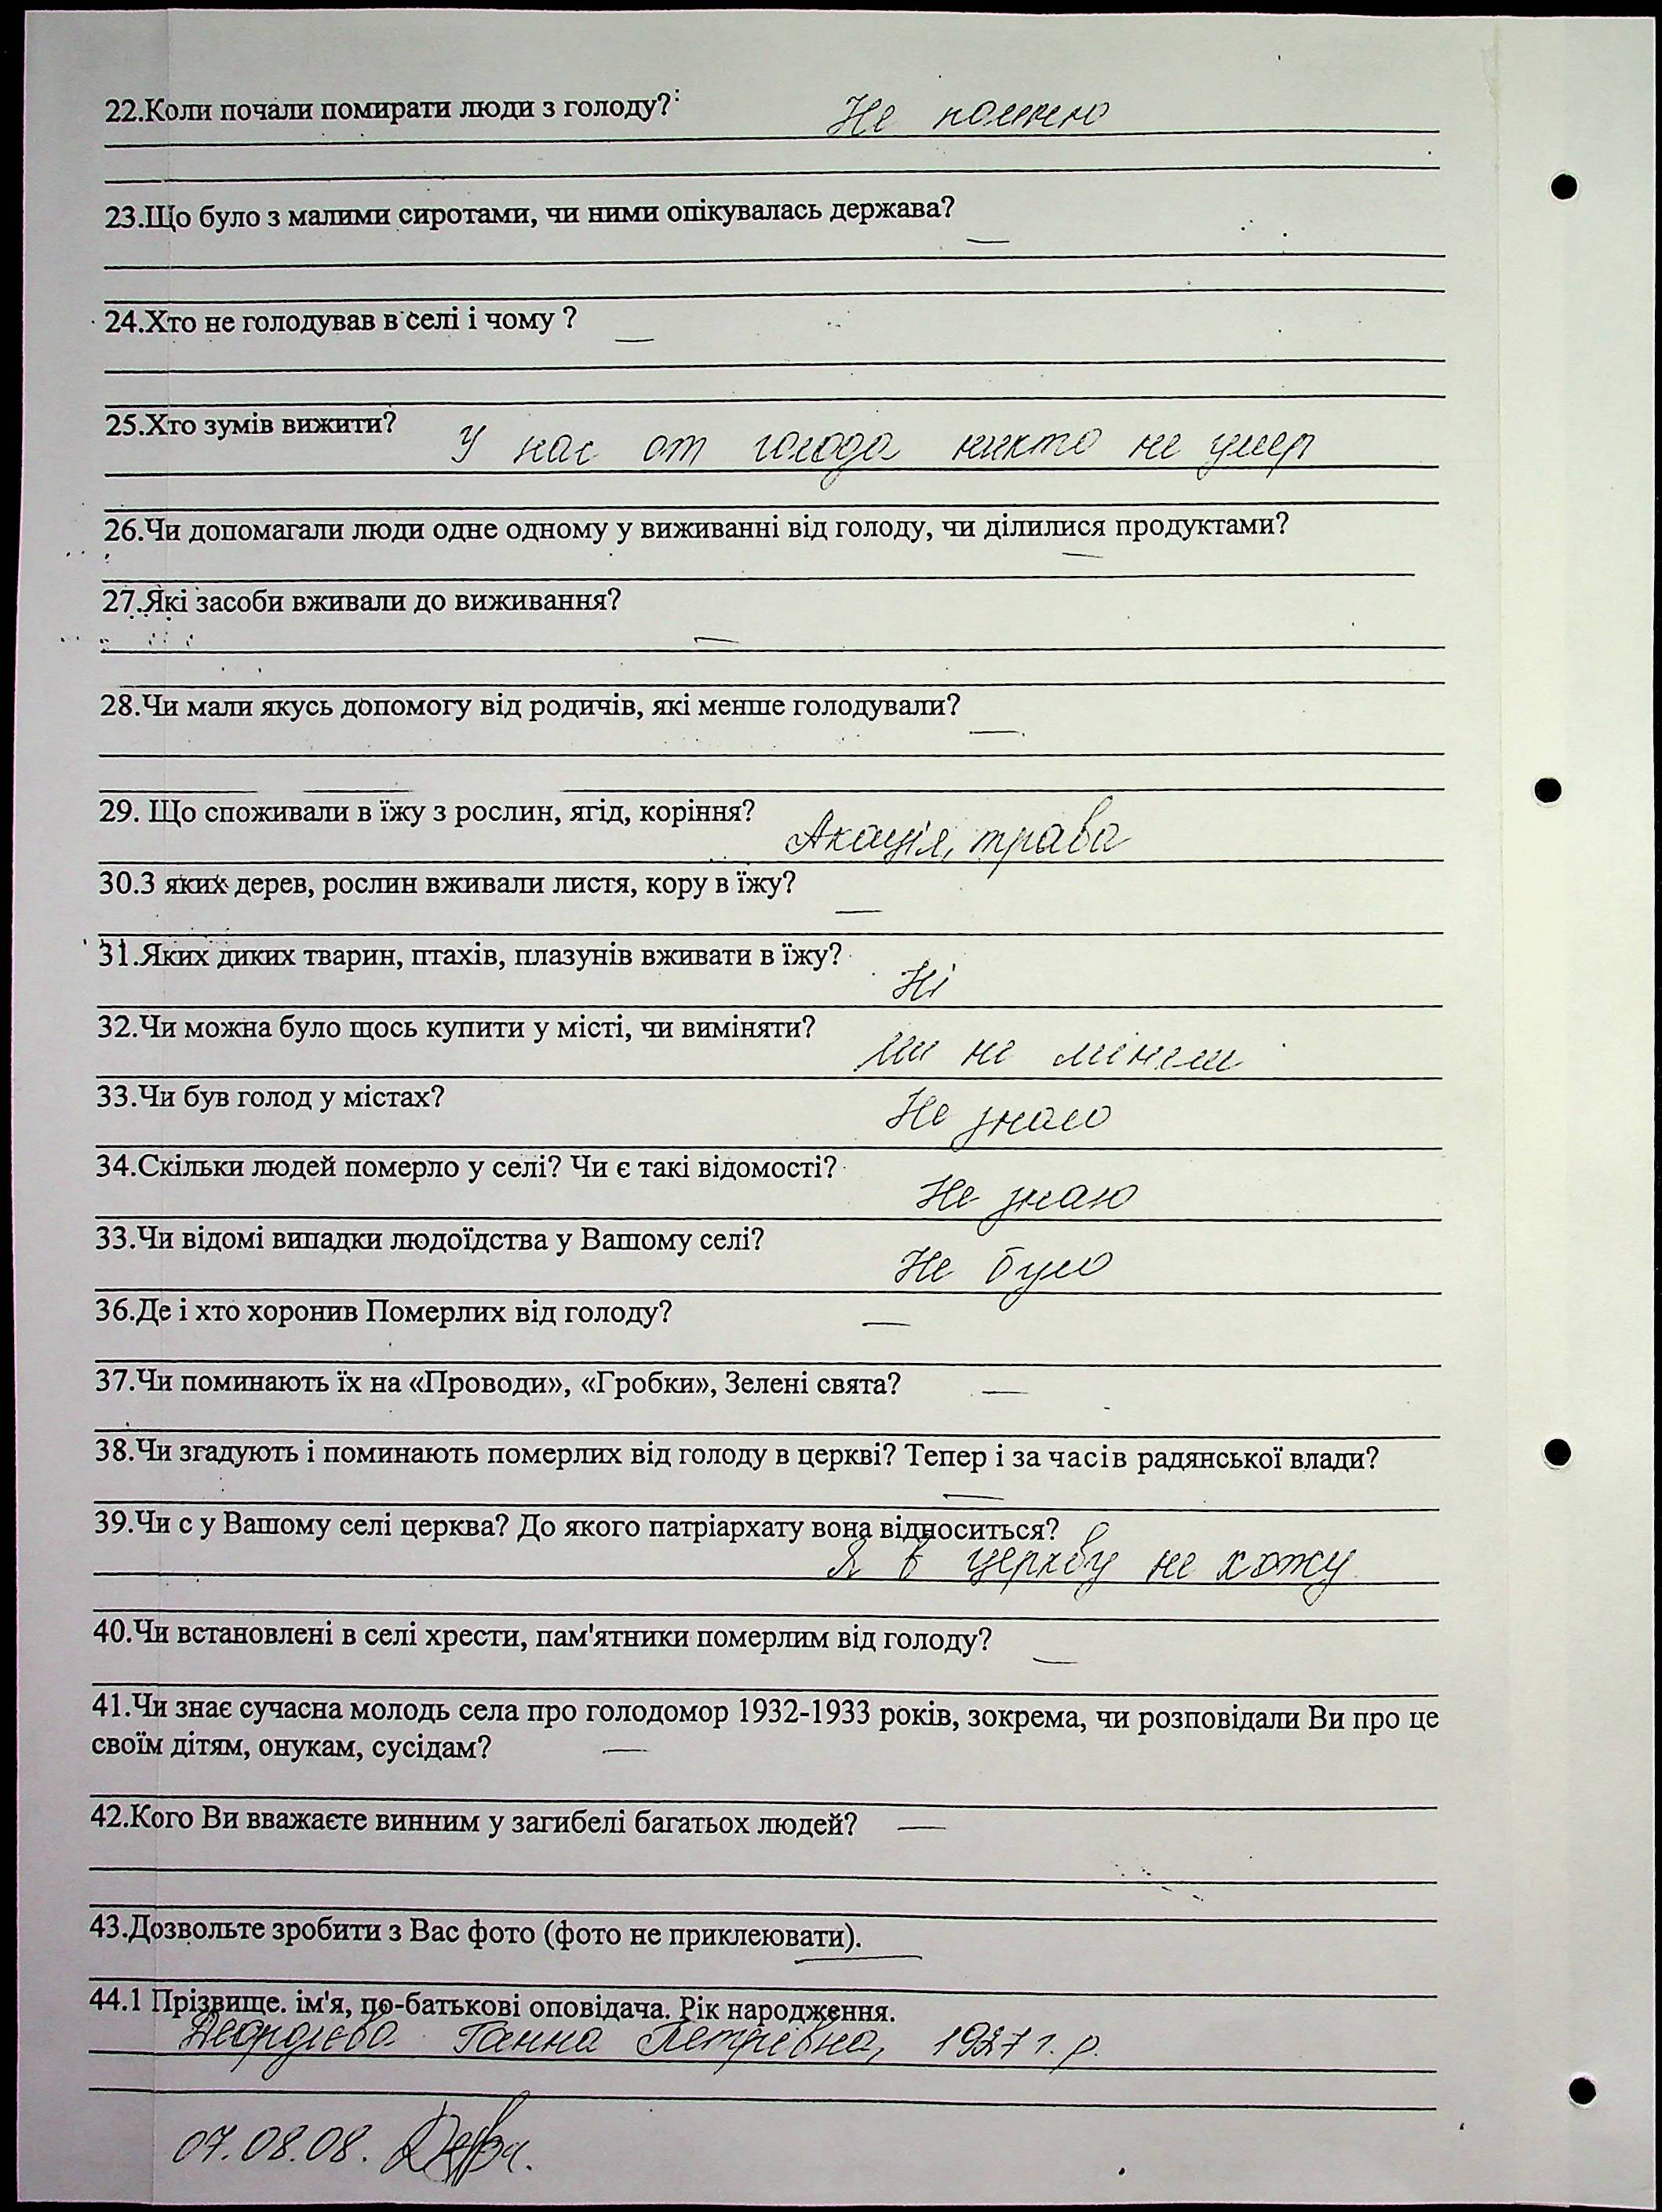 22.Коли почали помирати люди з голоду?
Не помню
23.Що було з малими сиротами, чи ними опікувалась держава?
—
24.Хто не голодував в селі і чому ?
—
25.Хто зумів вижити?
У нас от голода никто не умер
26.Чи допомагали люди одне одному у виживанні від голоду, чи ділилися продуктами?
—
27.Які засоби вживали до виживання?
—
28.Чи мали якусь допомогу від родичів, які менше голодували?
—
29. Що споживали в їжу з рослин, ягід, коріння?
Акація, трава
30.З яких дерев, рослин вживали листя, кору в їжу?
—
31.Яких диких тварин, птахів, плазунів вживати в їжу?
Ні
32.Чи можна було щось купити у місті, чи виміняти?
Ми не міняли
33.Чи був голод у містах?
Не знаю
34.Скільки людей померло у селі? Чи є такі відомості?
Не знаю
33.Чи відомі випадки людоїдства у Вашому селі?
Не було
36.Де і хто хоронив Померлих від голоду?
—
37.Чи поминають їх на «Проводи», «Гробки», Зелені свята?
—
38.Чи згадують і поминають померлих від голоду в церкві? Тепер і за часів радянської влади?
—
39.Чи с у Вашому селі церква? До якого патріархату вона відноситься?
Я в церкву не хожу
40.Чи встановлені в селі хрести, пам'ятники померлим від голоду?
—
41.Чи знає сучасна молодь села про голодомор 1932-1933 років, зокрема, чи розповідали Ви про це
своїм дітям, онукам, сусідам? —
42.Кого Ви вважаєте винним у загибелі багатьох людей? —
43.Дозвольте зробити з Вас фото (фото не приклеювати).
—
44.1 Прізвище. ім'я, по-батькові оповідача. Рік народження.
Ганна Петрівна, 1927 г.р.
07.08.08.